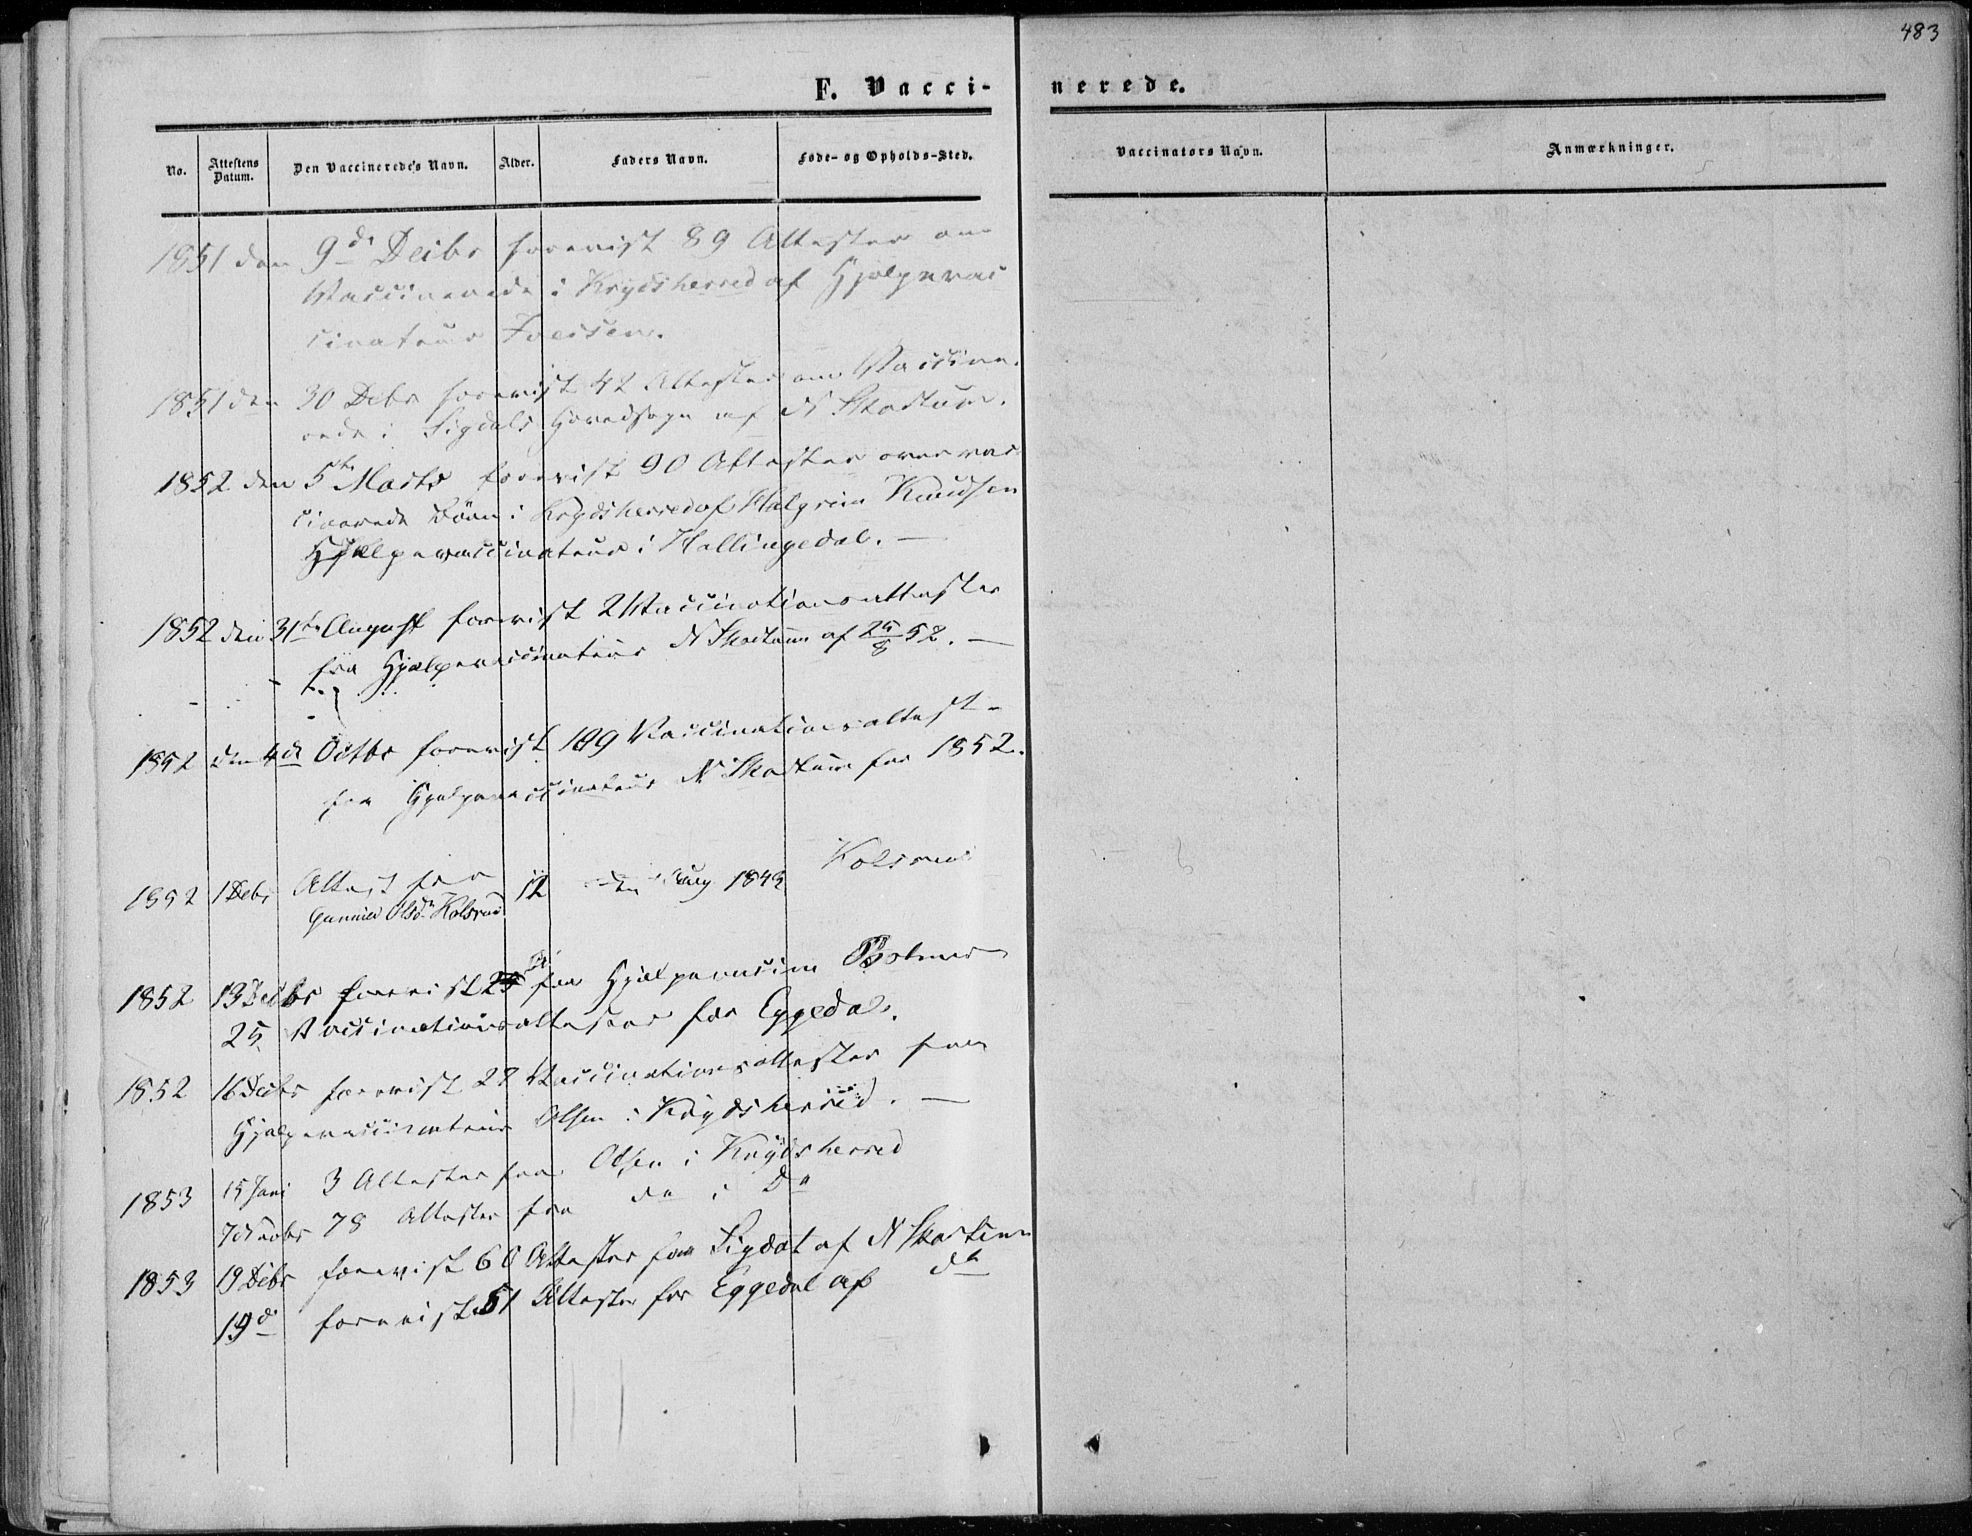 483
F. Vacci-nerede.
No. Attestens Datum. Den Vaccineredes Navn. Alder. Faders Navn. Føde- og Opholds-Sted. Vaccinators Navn. Anmærkninger.
1851 den 9de Decbr forevist 89 Attester om
Vaccinerede i Krydsherred af Hjælpevac
cinateur
1851 den 30 Debr forevist 42 Attester om Vaccine-
rede i Sigdals Hovedsogn af N Skartum.
1852 den 5te Marts forevist 90 Attester over vac
cinerede Børn i Krydsherred af Halgrim Knudsen
Hjælpevaccinateur i Hallingdal. —
1852 den 31te August forevist 2 Vaccinationsattester
fra Hjælpevaccinateur N Skartum af 25/8 52. —
1852 den 4de Octbr forevist 109 Vaccinationsattest-
fra Hjelpevaccinateur N Skartum for 1852.
1852 1 Debr Attest for 12 den Aug 1842 Kolsrud
Gunnild Olsdtr Kolsrud
1852 13 Decbr forevist 25 fra Hjælpevaccin
25 Vaccinationsattester for Eggedal.
1852 16 Decbr forevist 28 Vaccinationsattester fra
Hjælpevaccinateur Olsen i Krydsherred. —
1853 15 Juni 3 Attester fra Olsen i Krydsherred
7 Novbr 78 Attester fra do i Do
1853 19 Debr forevist 60 Attester for Sigdal af N Skartum
19de forevist 51 Attester for Eggedal af do